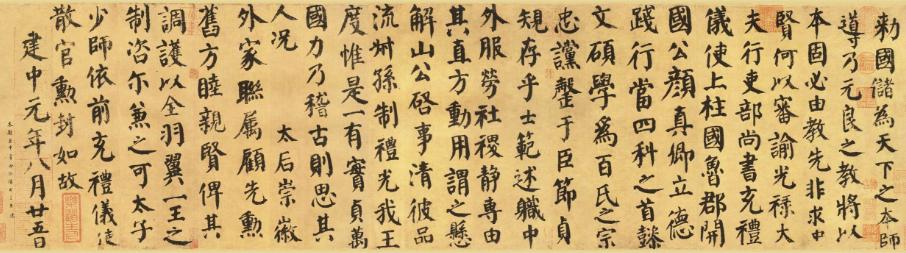 敕國儲為天下之本師
導乃元良之教將以
本固必由教先非求中
賢何以審諭光祿大
夫行吏部尚書充禮
儀使上柱國魯郡開
國公顏真卿立德
踐行當四科之首懿
文碩學為百氏之宗
忠讜罄于臣節貞
規存乎士範述職中
外服勞社稷靜專由
其直方動用謂之懸
解山公啓事清彼品
流叔孫制禮光我王
度惟是一有實貞萬
國力乃稽古則思其
人況 太后崇徽
外家聯属顧先勲
舊方睦親賢俾其
調護以全羽翼一王之
制咨尔兼之可太子
少師依前充禮儀使
散官勲封如故
建中元年八月廿五日